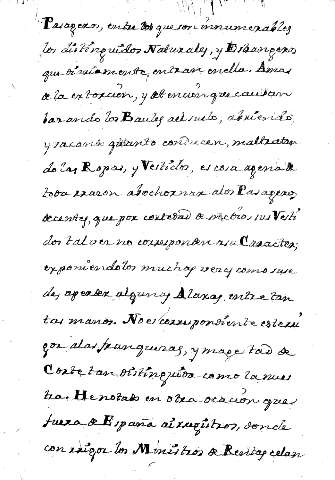 Pasageros, entre los que son innumerables
los distinguidos Naturales, y Estrangeros
que diariamente, entran en ella. Amas
de la extorcion, y detencion que causan
baxando los Baules al suelo, abriendo
y sacando quanto conducen, maltratan
do las Ropas, y Vestidos, es cosa agena de
toda razon abochornar a los Pasageros
decentes, que por cortedad de medios sus Vesti
dos tal vez no corresponden a su Caracter,
exponiendolos muchas veces como suce
de, a perder algunas Alaxas, entre tan
tas manos. No es correspondiente este ri
gor a las franquezas, y magestad de
Corte tan distinguida como la nues
tra. He notado en otra ocacion que
fuera de España ai registros, donde
con rigor los Ministros de Rentas celan